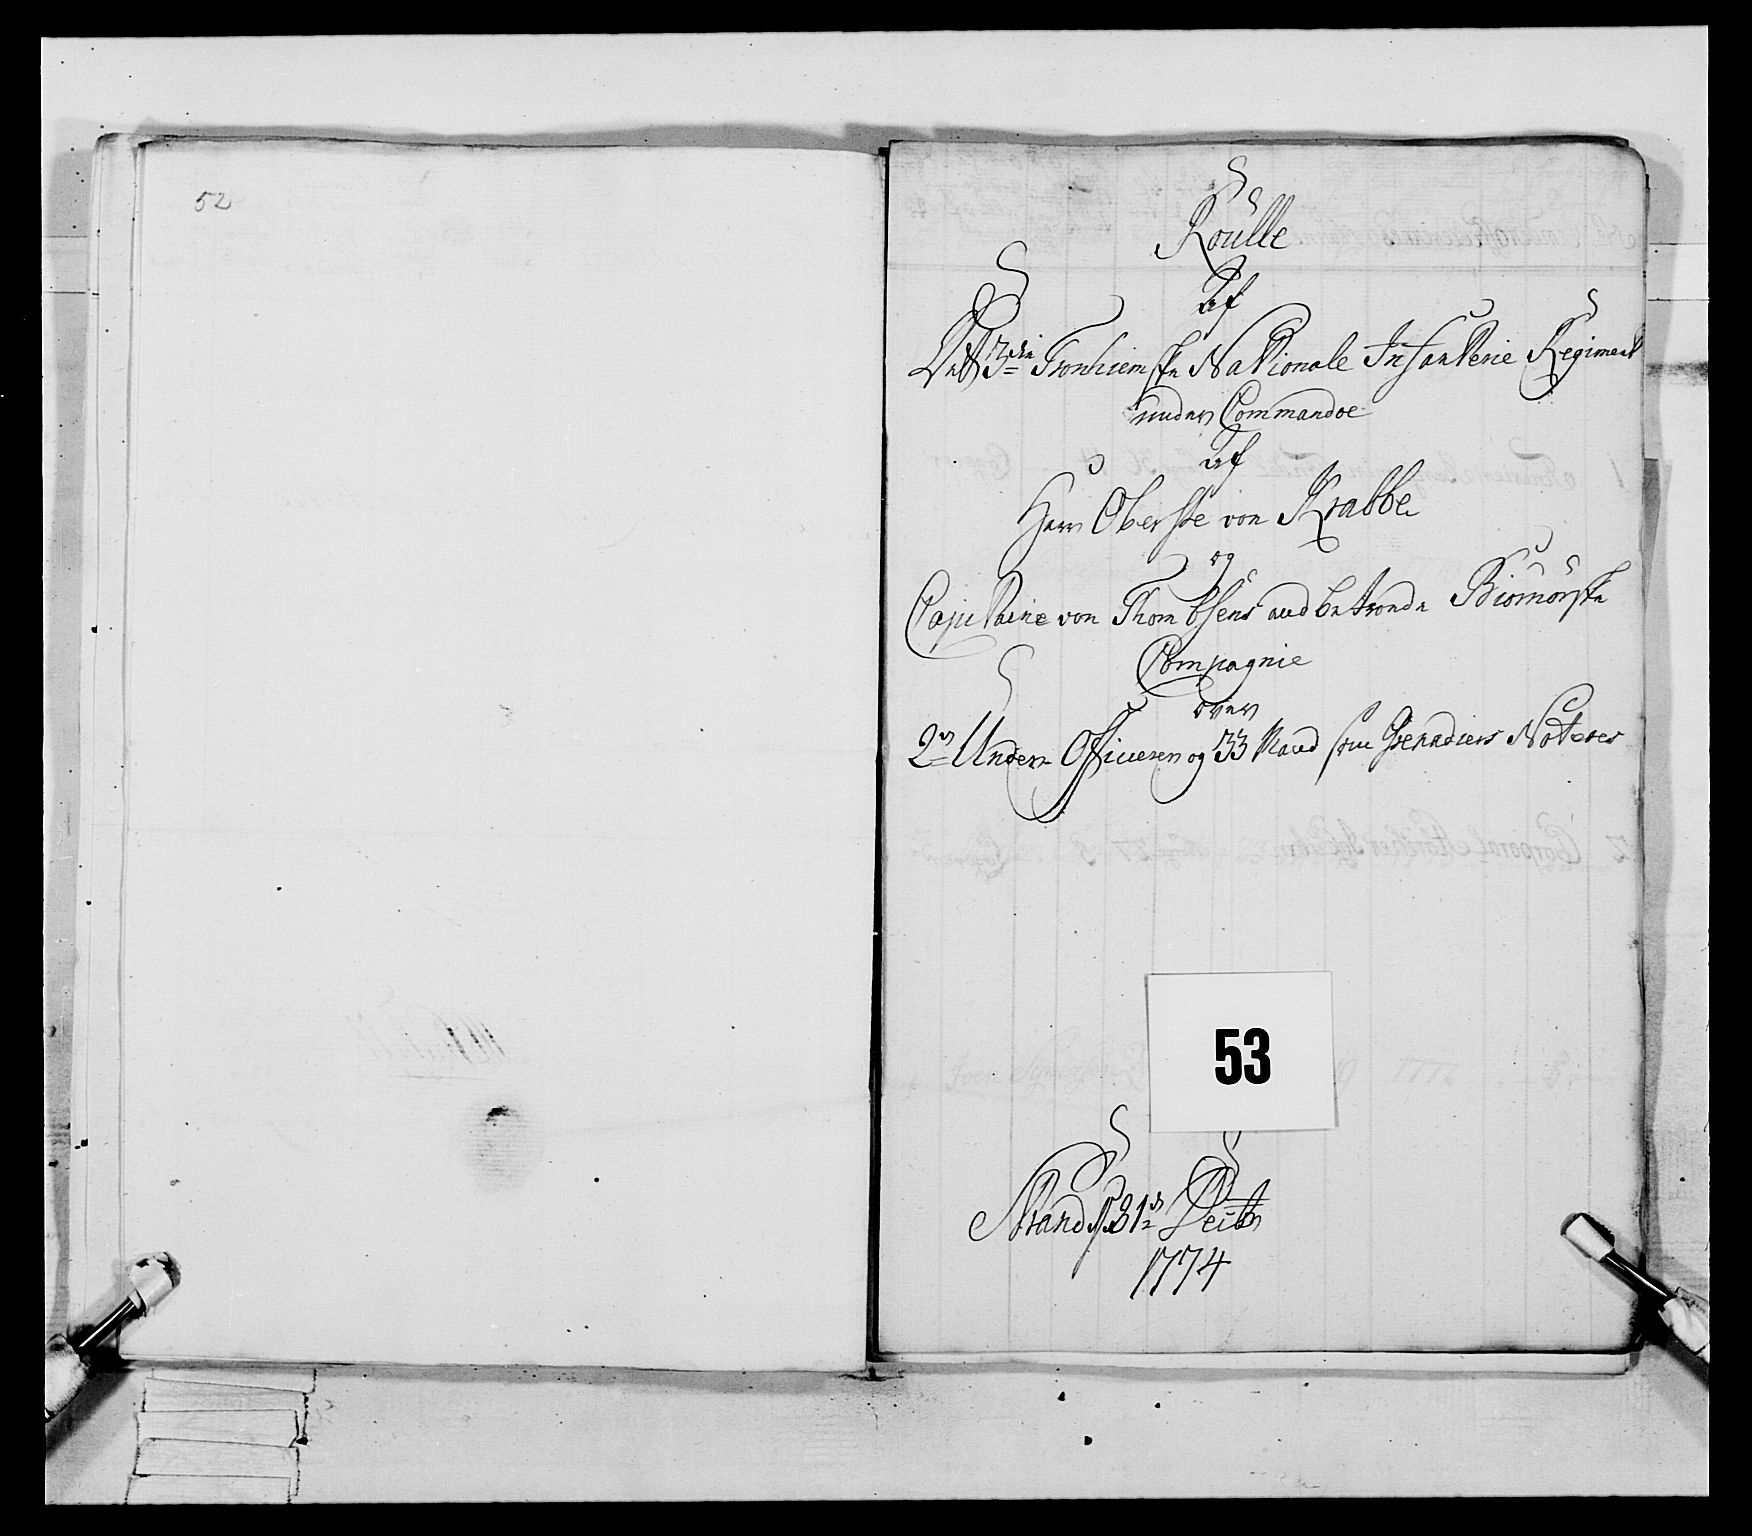 52
Roulle
Af
Det 3die Tronhiemske Nationale Infanterie Regiment
under Commandoe
af
Herr Oberste von Krabbe
og
Capitaine von Thombsens anbetroede Biornørske
Compagnie
over
2de Under Officerer og 33 Mand som Grenadiers Noteres
53
Strand d 31te Decbr
1774